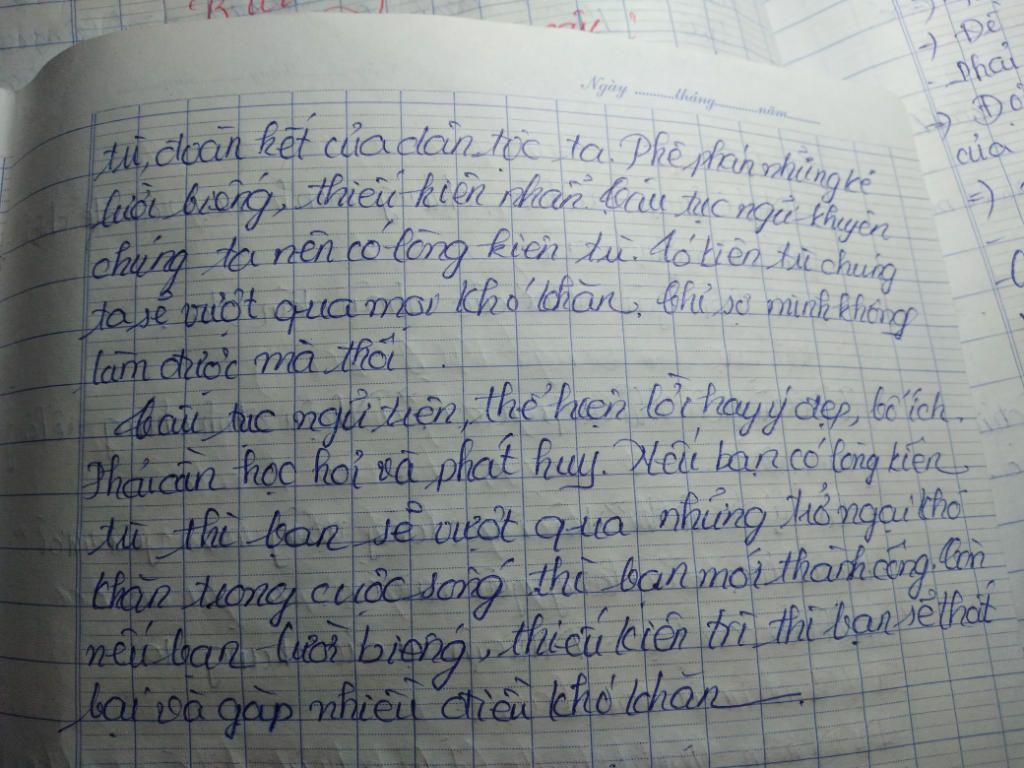 Đề
Ngày ......... tháng ......... năm ......
phải
Độ
của
trì, đoàn kết của dân tộc ta. Phê phán những kẻ
lười biếng, thiếu kiên nhẫn. Câu tục ngữ khuyên
chúng ta nên có lòng kiên trì. Có kiên trì chúng
ta sẽ vượt qua mọi khó khăn, chỉ sợ mình không
làm được mà thôi.
Câu tục ngữ trên, thể hiện lời hay ý đẹp, bổ ích.
Phải cần học hỏi và phát huy. Nếu bạn có lòng kiên
trì thì bạn sẽ vượt qua những trở ngại khó
khăn trong cuộc sống thì bạn mới thành công. Còn
nếu bạn lười biếng, thiếu kiên trì thì bạn sẽ thất
bại và gặp nhiều điều khó khăn.